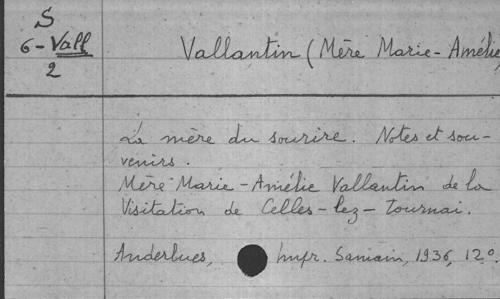 S
6-Vall
2
Vallantin (Mère Marie-Amélie
La mère du sourire. Notes et sou-
venirs.
Mère Marie-Amélie Vallantin de la
Visitation de Celles-lez-Tournai.
Anderlues, Impr. Samain, 1936, 12°.